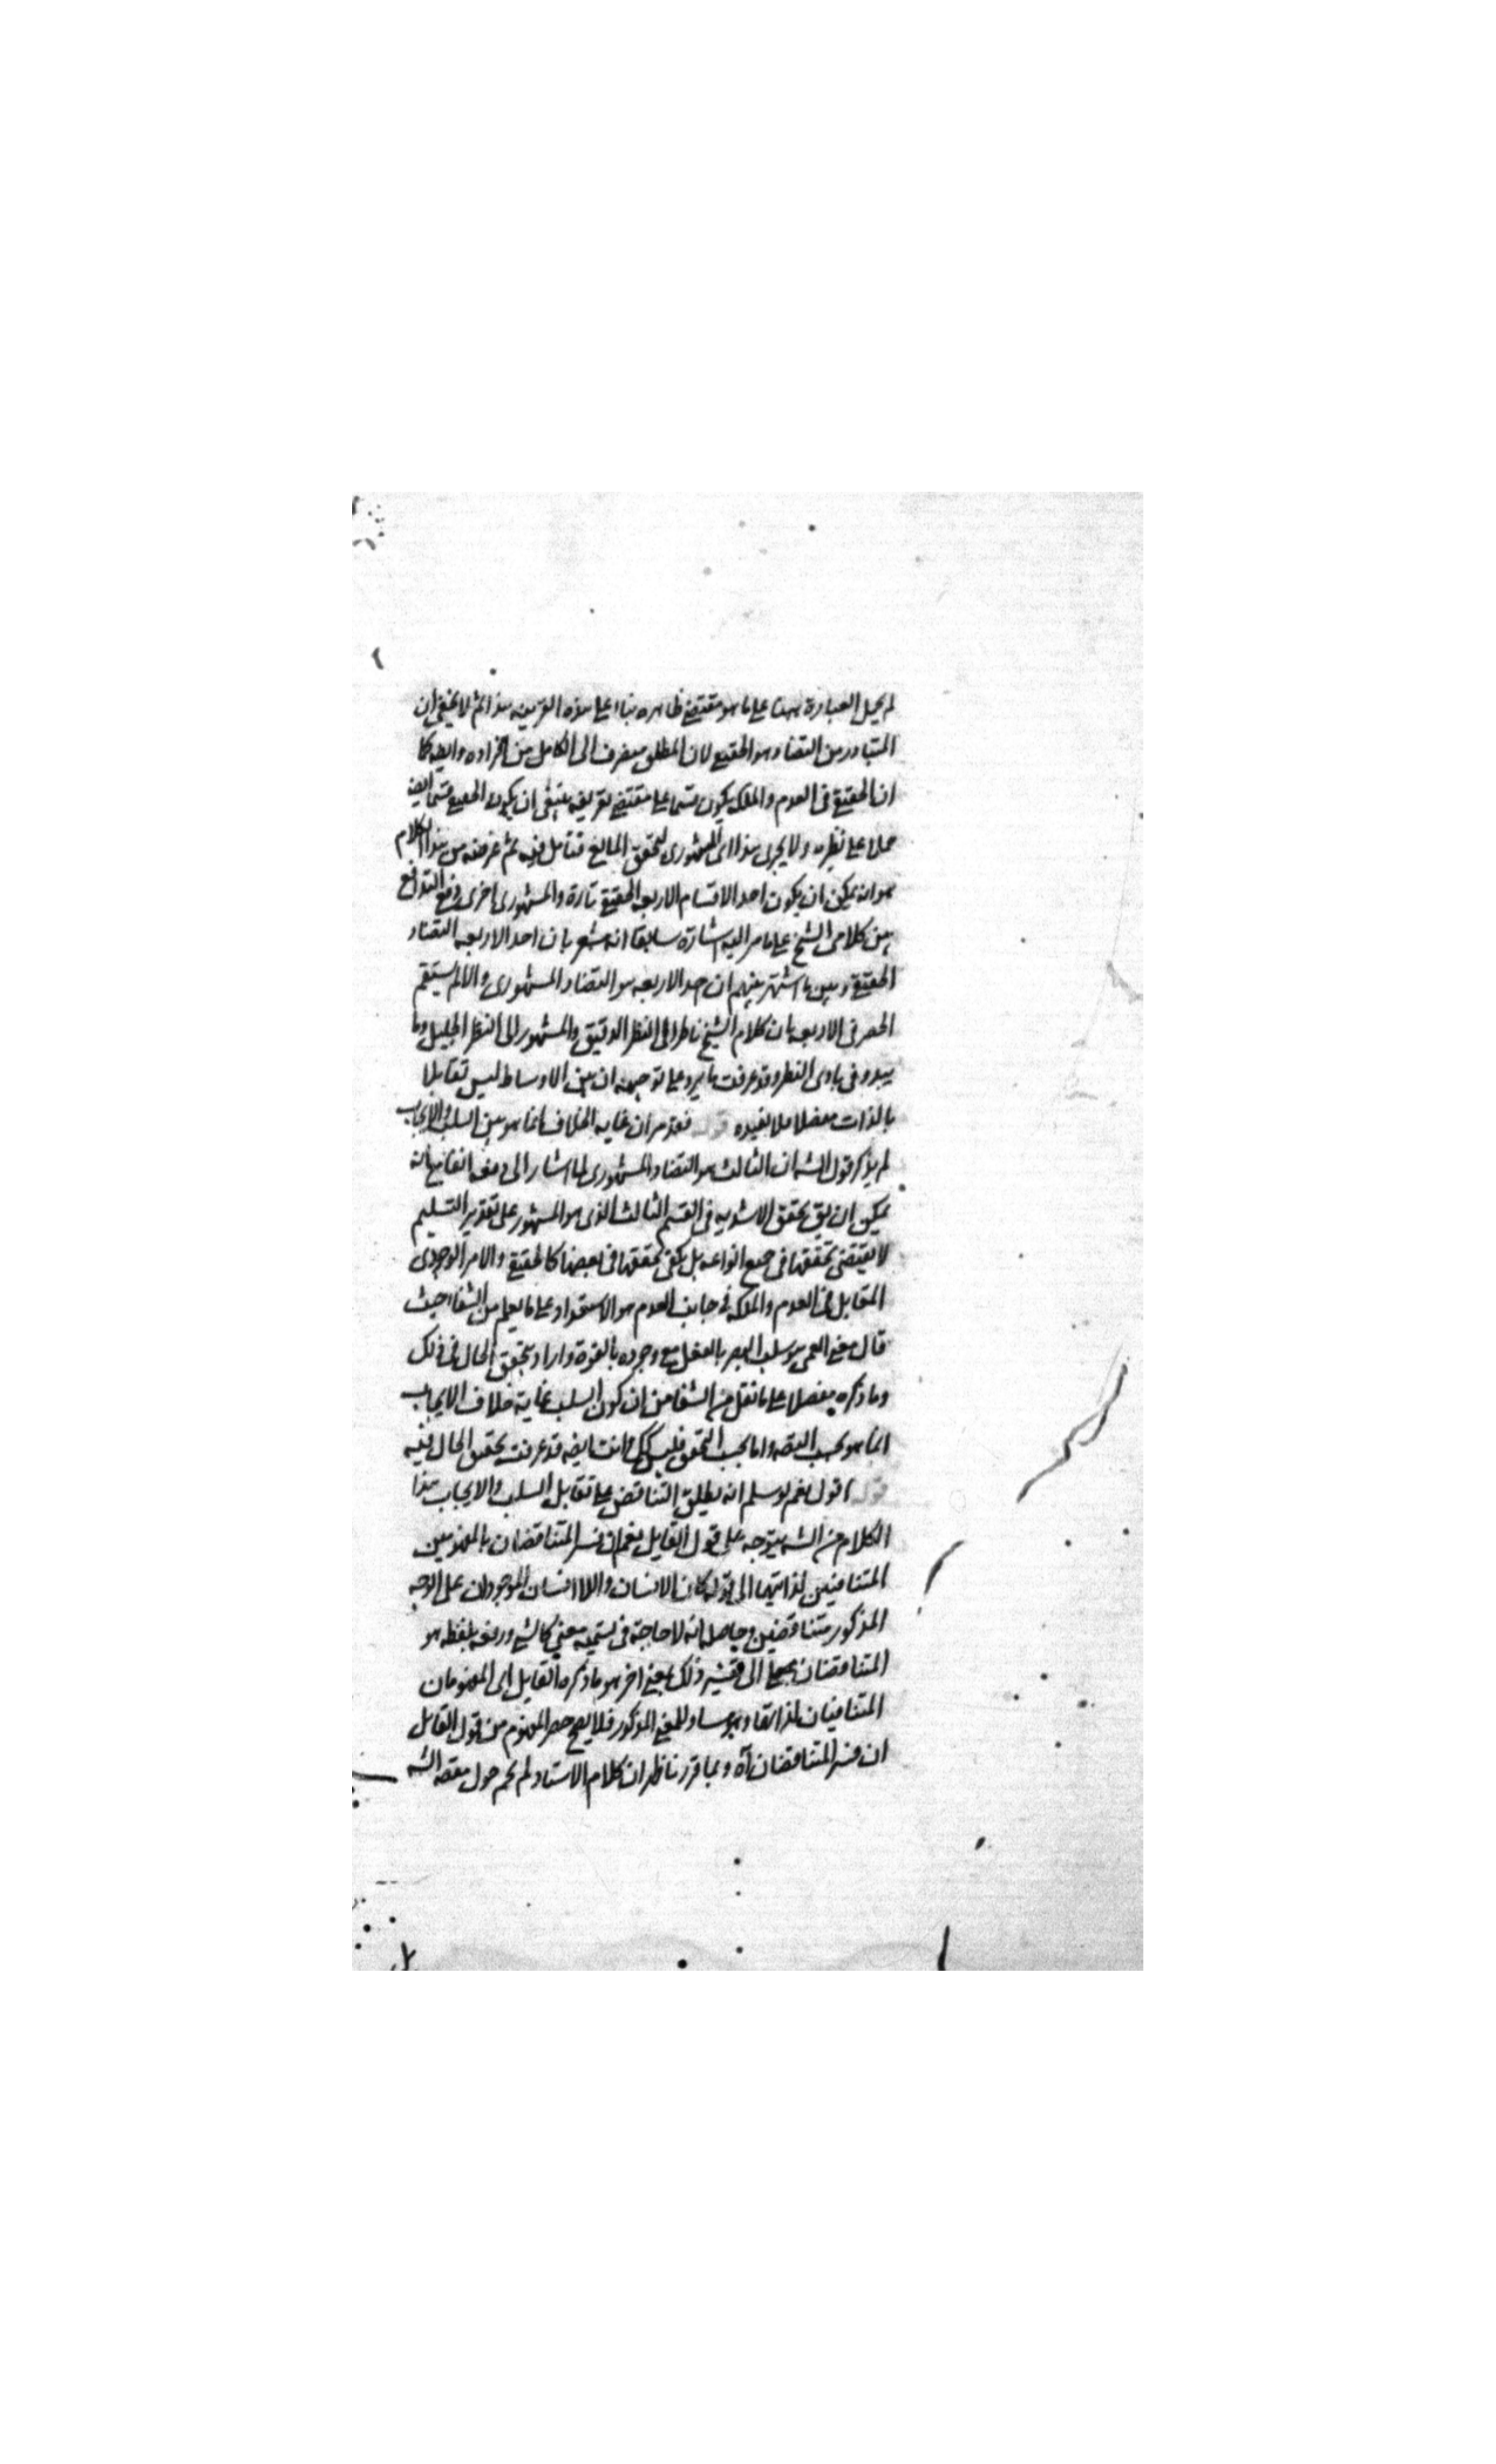 لم يحمل العبارة ههنا على ما هو مقتضى ظاهره بناء على هذه القرينه هذا ثم لا يخفى ان
المتبادر من التضاد هو الحقيقى لان المطلق منصرف الى الكامل من افراده وايضه كما
ان الحقيقى فى العدم والملكه يكون قسما على مقتضى تعريفه ينبغى ان يكون الحقيقى قسما ايضه
حملا على نظيره ولا يجرى هذا الى المشهورى لتحقق المانع فتامل فيه ثم غرضه من هذا الكلام
هو انه يمكن ان يكون احد الاقسام الاربعه الحقيقى تارة والمشهورى اخرى دفع التدافع
بين كلامى الشيخ على ما مر اليه اشارة سابقا انه يشعر بان احد الاربعه التضاد
الحقيقى وبين ما اشتهر بينهم ان احد الاربعه هو التضاد المشهورى والا لم يستقم
الحصر فى الاربعه بان كلام الشيخ ناظر الى النظر الدقيق والمشهور الى النظر الجليل وما
يبدو فى بادى النظر وقد عرفت ما يرد على توجيهه ان بين الاوساط ليس تقابلا
بالذات مفصلا فلا نعيده قوله فقد مر ان غايه الخلاف انما هو بين السلب والايجاب
لم يذكر قول الشه ان الثالث هو التضاد المشهورى لما اشار الى دفعه انفا مع انه
يمكن ان يق تحقق الاشديه فى القسم الثالث الذى هو المشهور على تقدير التسليم
لا يقتضى تحققها فى جميع انواعه بل يكفى تحققها فى بعضها كالحقيقى والامر الوجودى
المقابل فى العدم والملكه فى جانب العدم هو الاستعداد على ما يعلم من الشفاء حيث
قال معنى العمى هو سلب البصر بالفعل مع وجوده بالقوة واراد بتحقق الحال فى ذلك
وما ذكره مفصلا على ما نقل من الشفا من ان كون السلب غاية خلاف الايجاب
انما هو بحسب التصه واما بحسب التحقق فليس كك وانت ايضه قد عرفت تحقيق الحال فيه
قوله اقول نعم لو سلم انه يطلق التناقض على تقابل السلب والايجاب هذا
الكلام من الشه يتوجه على قول القايل نعم ان فسر المتناقضان بالمفهومين
المتنافيين لذاتيهما الى قوله كان الانسان واللاانسان الموجودان على الوجه
المذكور متناقضين وحاصله انه لا حاجة فى تسميه معنى كالشى ورفعه بلفظ هو
المتناقضان الى تفسير ذلك بمعنى اخر هو ما ذكره القايل اى المفهومان
المتنافيان لذاتهما وهو مساو للمعنى المذكور فلا يصح حصر المفهوم من قول القايل
ان فسر المتناقضان آه وبما قررنا ظهر ان كلام الاستاد لم يحم حول مقصه الشه